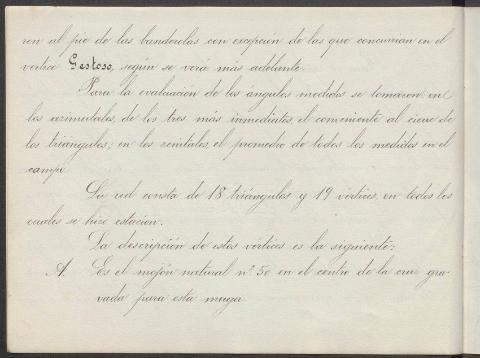 ron al pie de las banderolas con excepción de las que concurrian en el
vertice Gestoso, según se verá más adelante.
Para la evaluación de los ángulos medidos se tomaron en
los azimutales, de los tres más inmediatos, el conveniente al cierre de
los triángulos; en los zenitales, el promedio de todos los medidos en el
campo.
La red consta de 18 triángulos y 19 vértices, en todos los
cuales se hizo estacion.
La descripción de estos vértices es la siguiente:
A. Es el mojón natural nº 50 en el centro de la cruz gra-
vada para esta muga